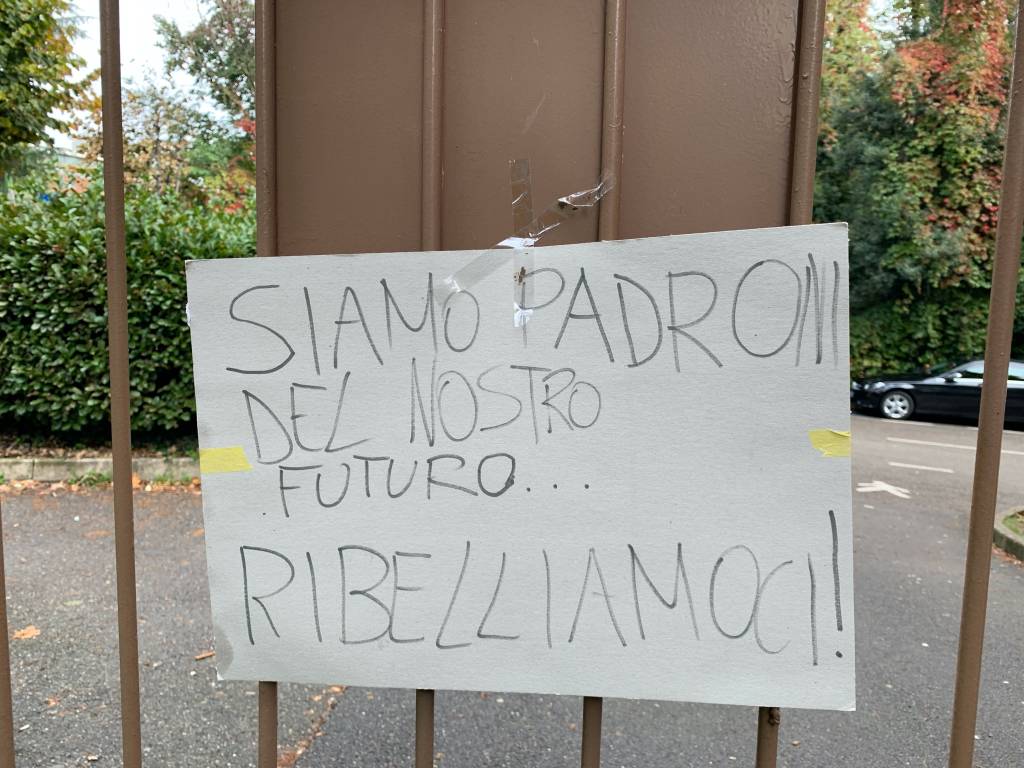 SIAMO PADRONI
DEL NOSTRO
FUTURO...
RIBELLIAMOCI!